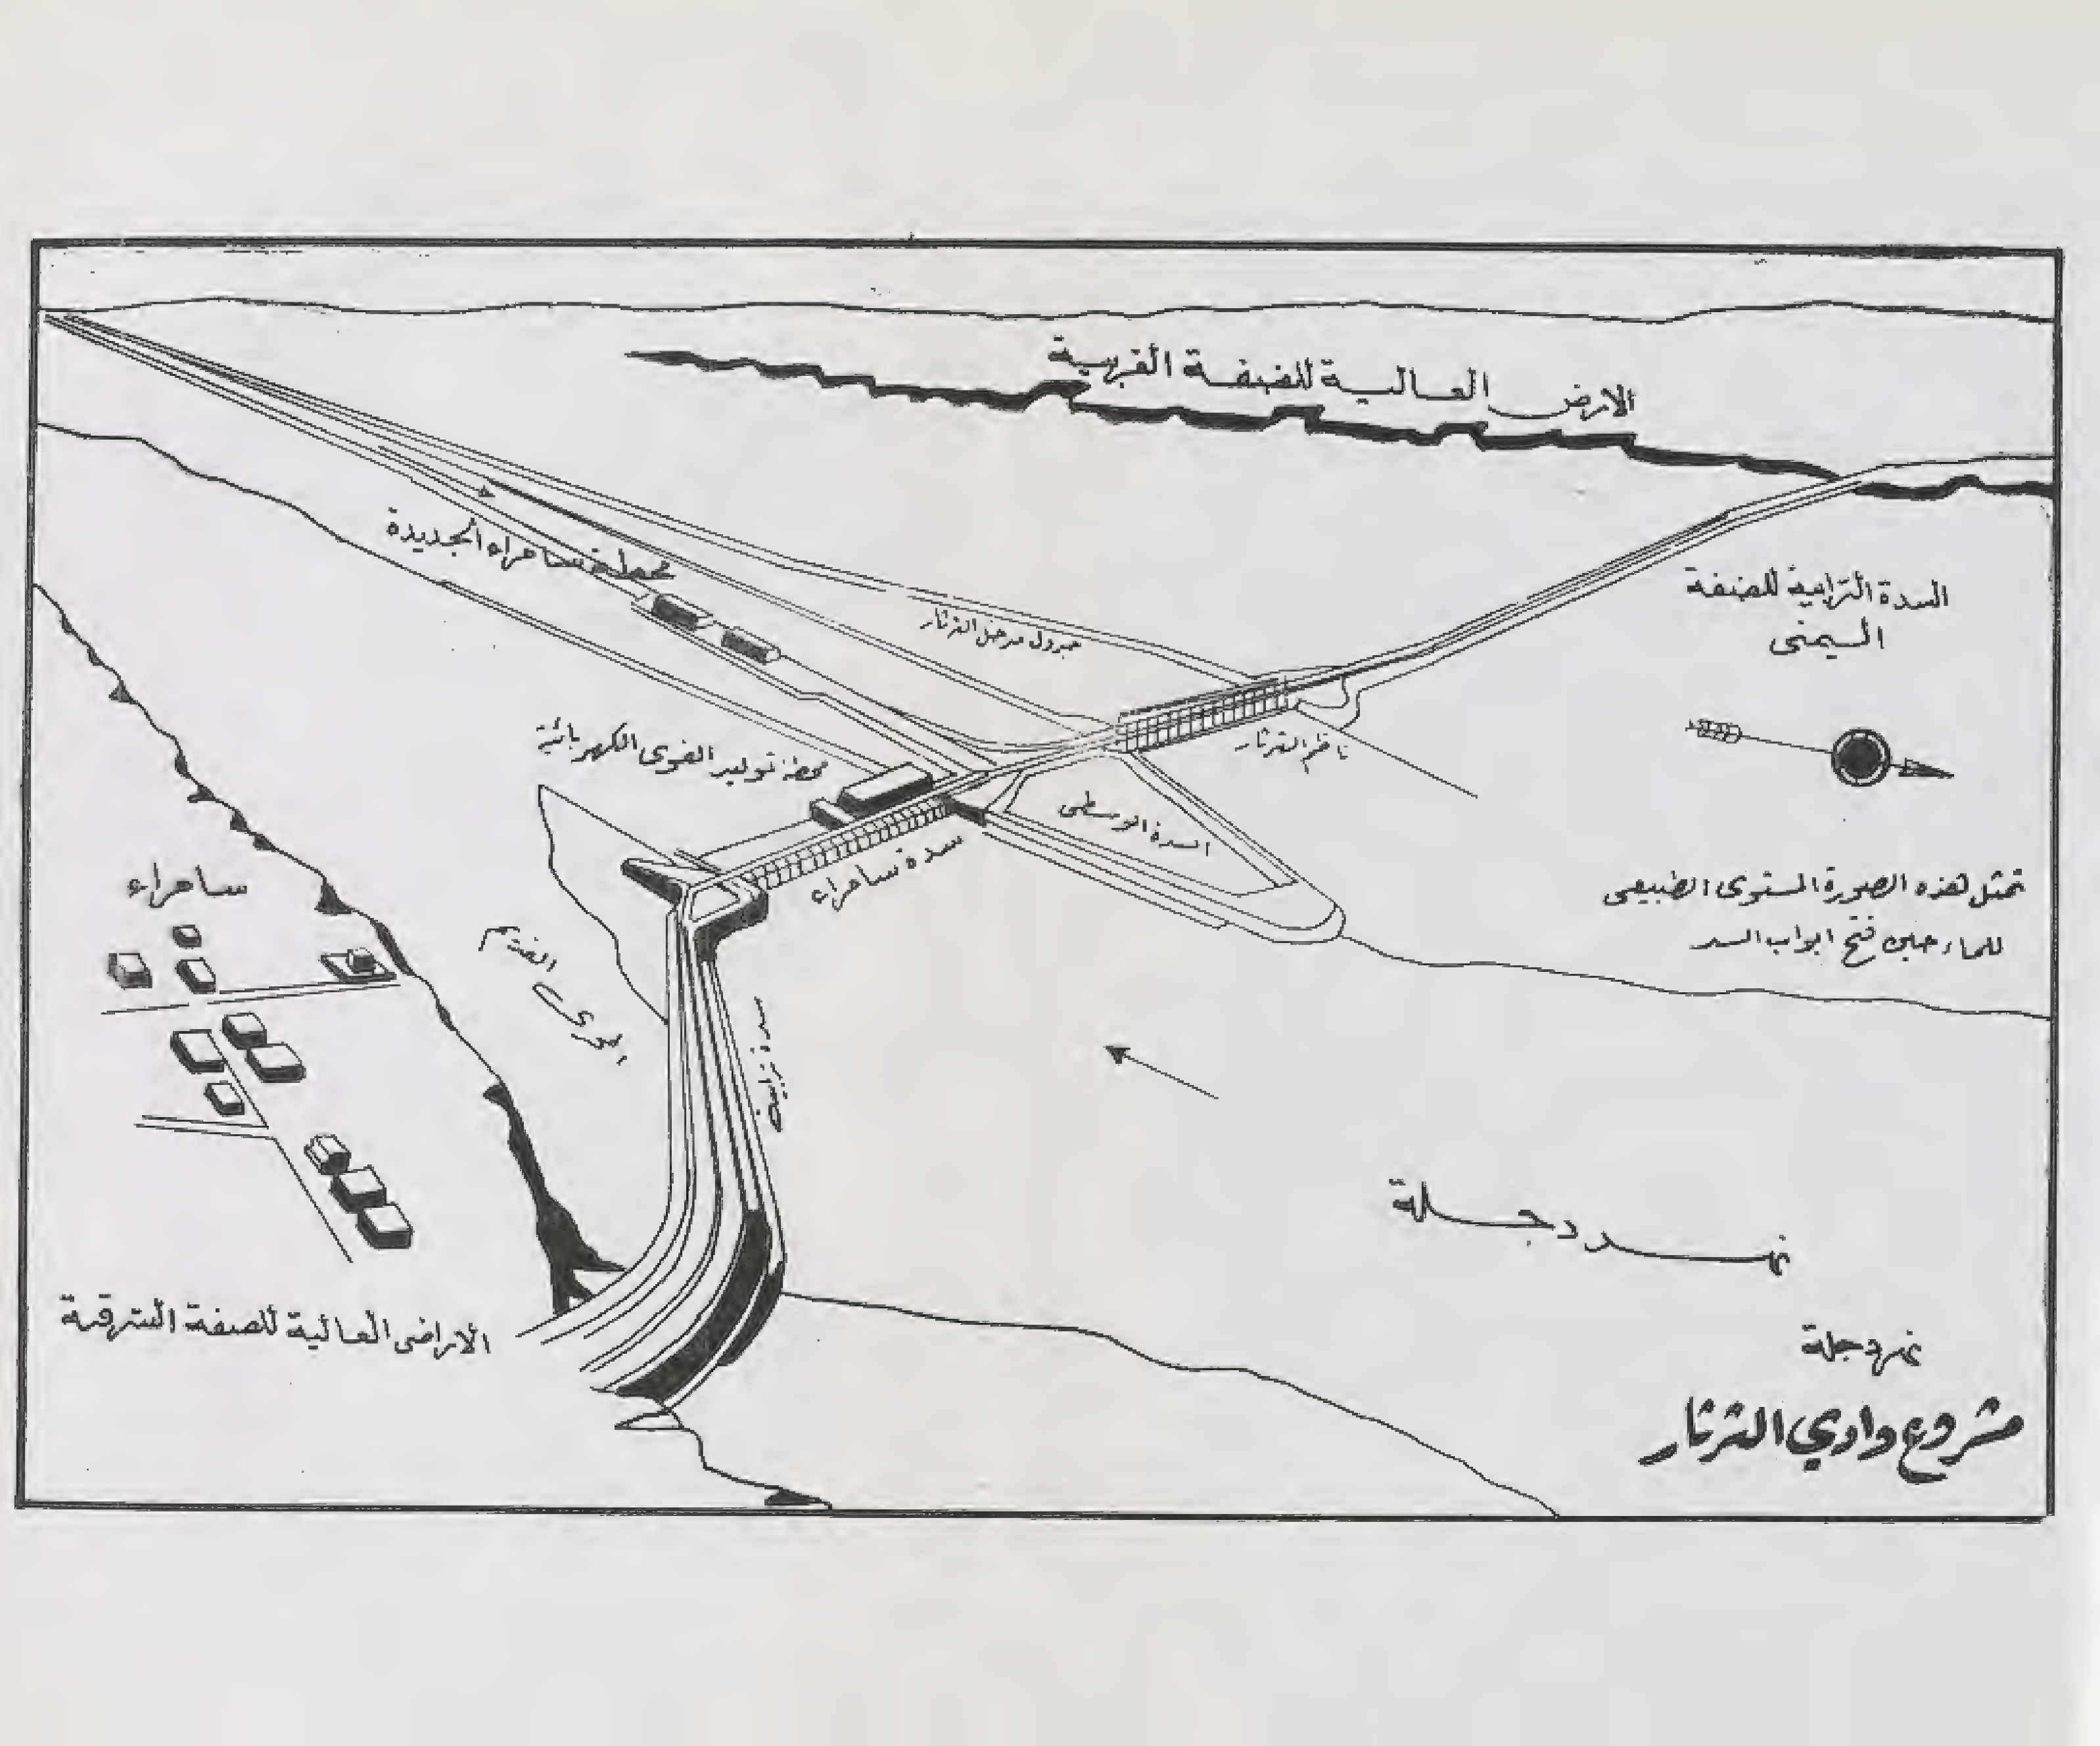 الارض العالية للضفة الغربية
محطة سامراء الجديدة
جدول مدخل الثرثار
السدة الترابية للضفة
اليمنى
ناظم الثرثار
محطة توليد القوى الكهربائية
السدة الوسطى
سدة سامراء
تمثل هذه الصورة المستوى الطبيعي
للماء حين فتح ابواب السد
سامراء
المجرى القديم
سدة ترابية
نهر دجلة
الاراضي العالية للضفة الشرقية
نهر دجلة
مشروع وادي الثرثار